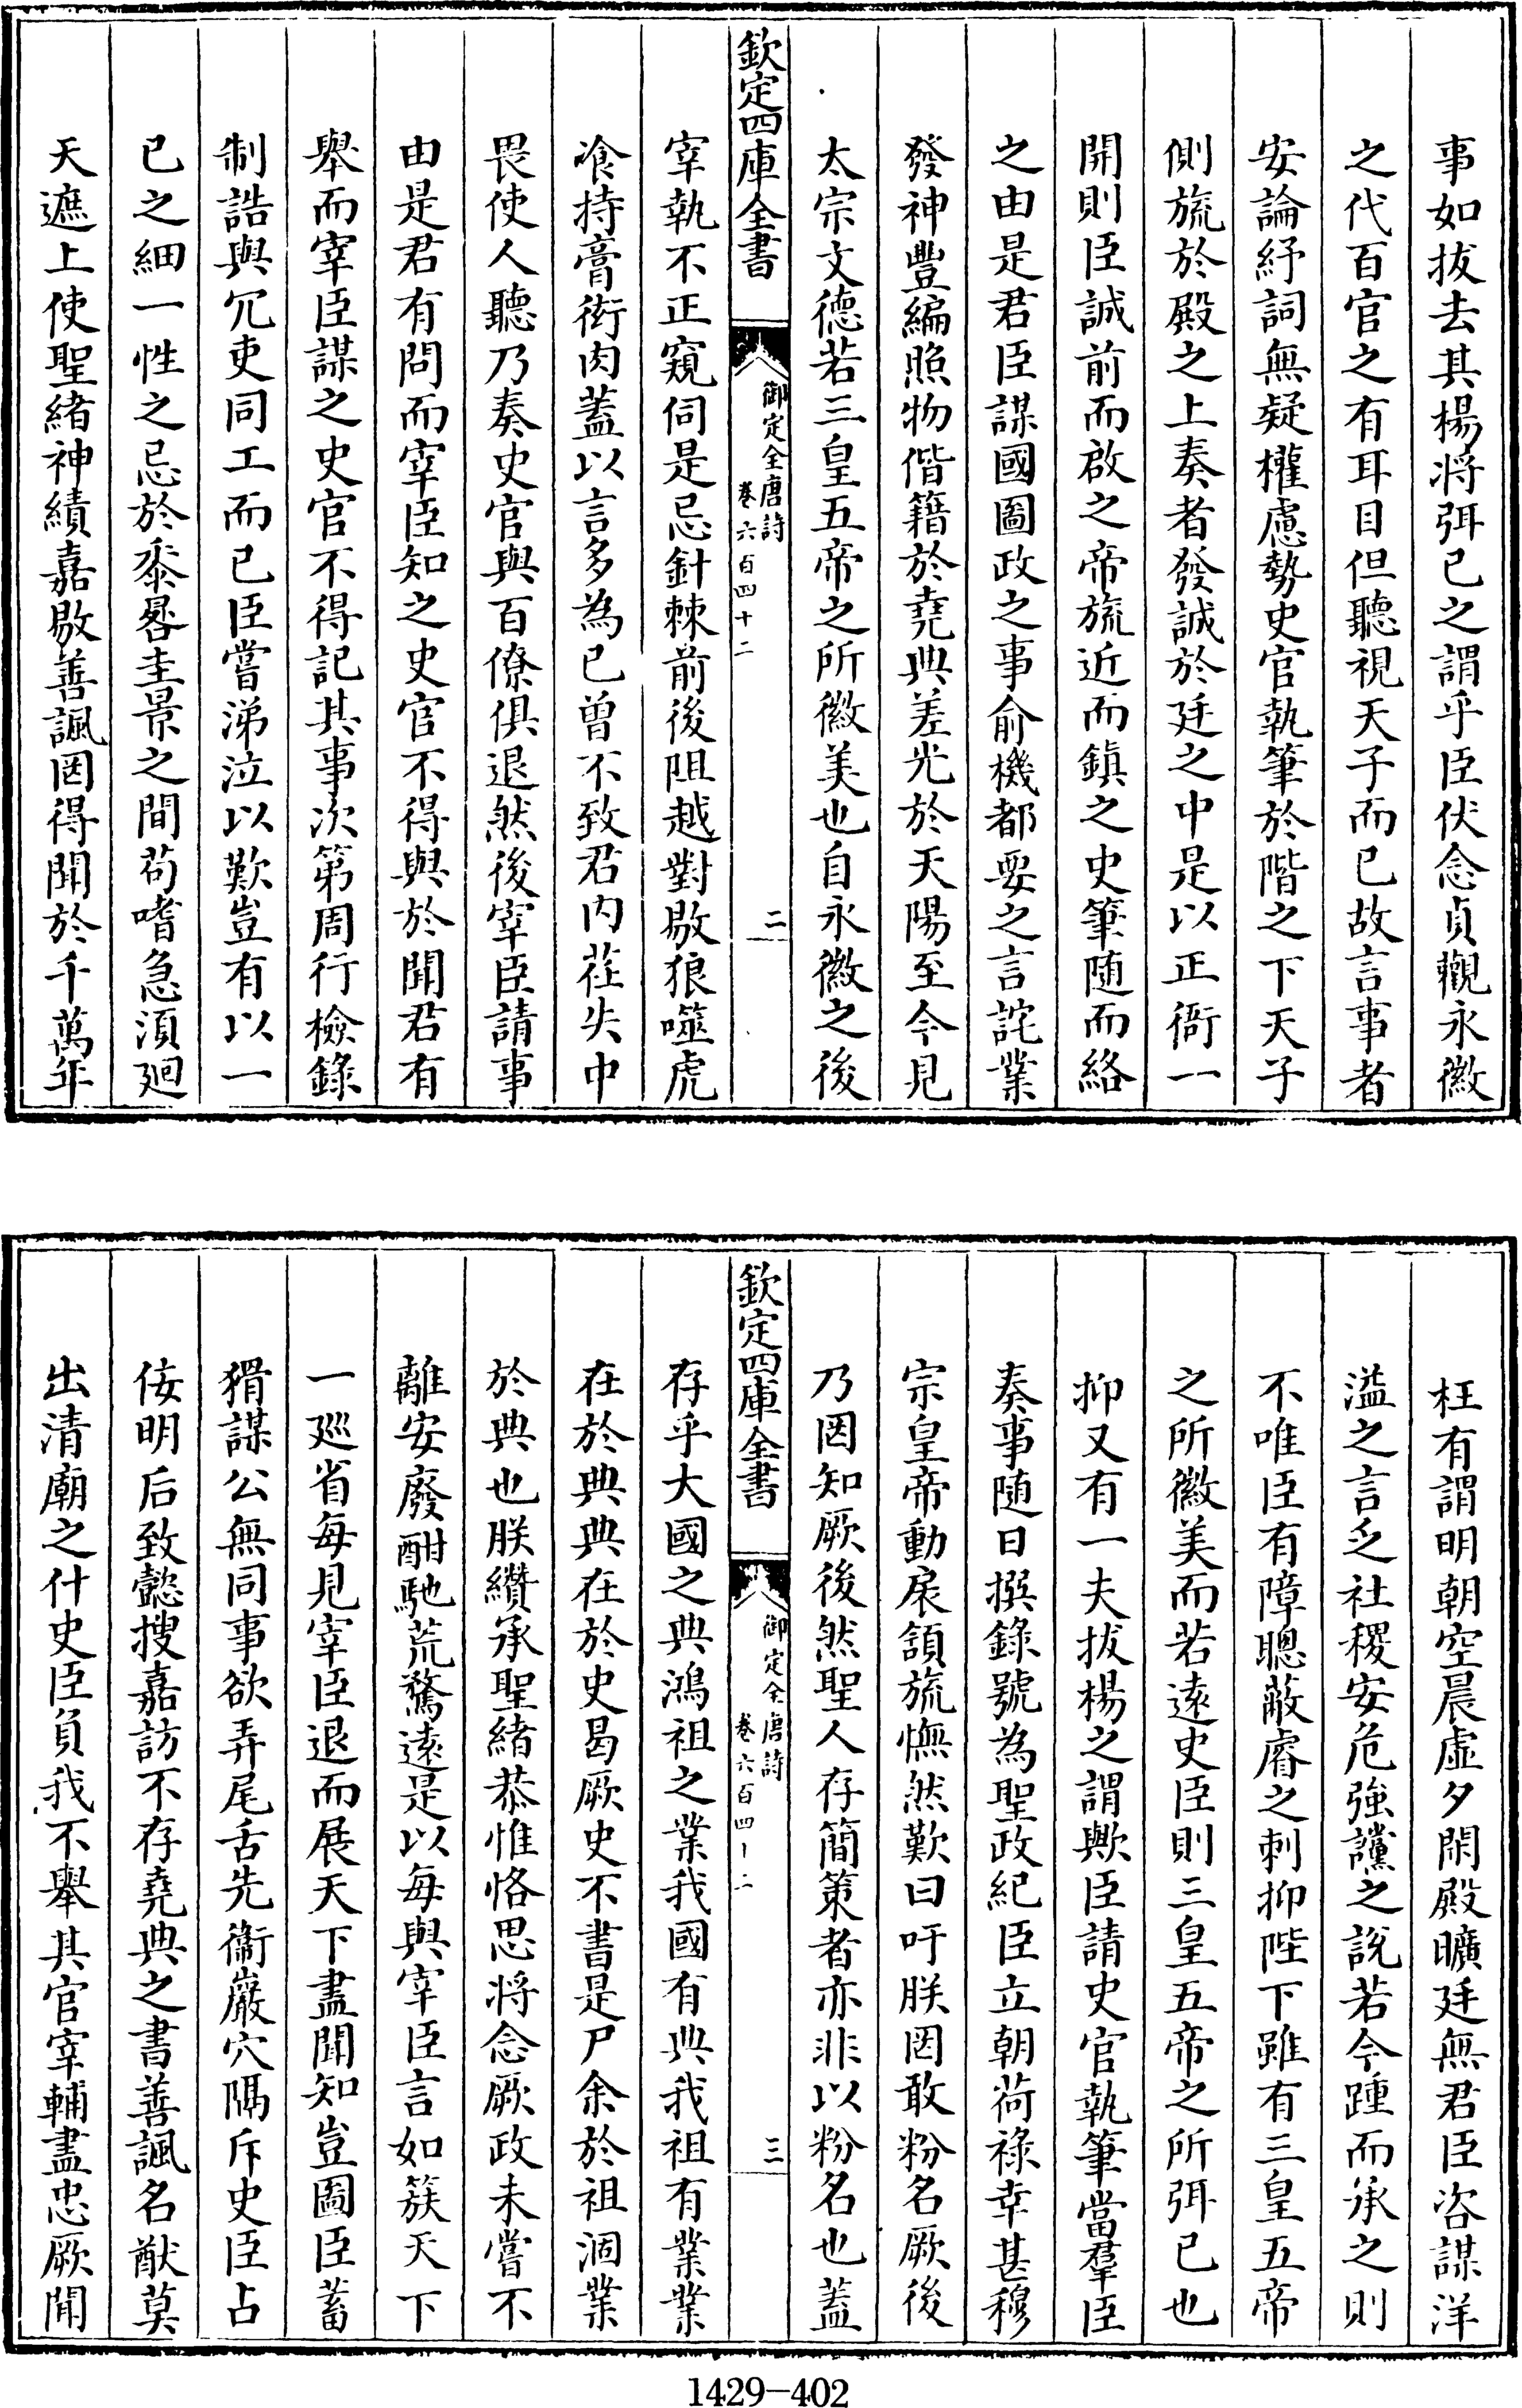 事如拔去其楊将弭已之謂乎臣伏念貞觀永徽
之代百官之有耳目但聽視天子而已故言事者
安論紓詞無疑權慮勢史官執筆於階之下天子
側旒於殿之上奏者發誠於廷之中是以正衙一
開則臣誠前而啟之帝旒近而鎮之史筆随而絡
之由是君臣謀國圖政之事俞機都要之言詫業
發神豐編照物偕籍於堯典差光於天陽至今見
太宗文德若三皇五帝之所徽美也自永徽之後
欽定四庫全書
御定全唐詩
卷六百四十二
二
宰執不正窺伺是忌針棘前後阻越對敭狼噬虎
飡持膏衒肉蓋以言多為已曾不致君内荏失中
畏使人聽乃奏史官與百僚俱退然後宰臣請事
由是君有問而宰臣知之史官不得與於聞君有
舉而宰臣謀之史官不得記其事次第周行檢錄
制誥與冗吏同工而已臣嘗涕泣以歎豈有以一
已之細一性之忌於黍晷圭景之間茍嗜急湏廻
天遮上使聖緒神績嘉敭善諷罔得聞於千萬年
枉有謂明朝空晨虚夕閑殿曠廷無君臣咨謀洋
溢之言乏社稷安危強讜之說若今踵而承之則
不唯臣有障聰蔽睿之刺抑陛下雖有三皇五帝
之所徽美而若遠史臣則三皇五帝之所弭已也
抑又有一夫拔楊之謂歟臣請史官執筆當羣臣
奏事随日撰錄號為聖政紀臣立朝荷祿幸甚穆
宗皇帝動扆頷旒憮然歎曰吁朕罔敢粉名厥後
乃罔知厥後然聖人存簡策者亦非以粉名也蓋
欽定四庫全書
御定全唐詩
卷六百四十二
三
存乎大國之典鴻祖之業我國有典我祖有業業
在於典典在於史曷厥史不書是尸余於祖涸業
於典也朕纘承聖緒恭惟恪思将念厥政未嘗不
離安廢酣馳荒騖遠是以每與宰臣言如簇天下
一廵省每見宰臣退而展天下盡聞知豈圖臣蓄
猾謀公無同事欲弄尾舌先衞巖穴隅斥史臣占
侒明后致懿搜嘉訪不存堯典之書善諷名猷莫
出清廟之什史臣負我不舉其官宰輔盡忠厥聞
1429-402